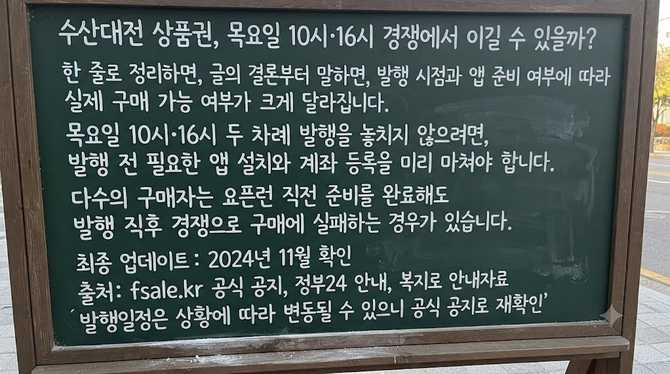 수산대전 상품권, 목요일 10시·16시 경쟁에서 이길 수 있을까?
한 줄로 정리하면, 글의 결론부터 말하면, 발행 시점과 앱 준비 여부에 따라
실제 구매 가능 여부가 크게 달라집니다.
목요일 10시·16시 두 차례 발행을 놓치지 않으려면,
발행 전 필요한 앱 설치와 계좌 등록을 미리 마쳐야 합니다.
다수의 구매자는 요픈런 직전 준비를 완료해도
발행 직후 경쟁으로 구매에 실패하는 경우가 있습니다.
최종 업데이트: 2024년 11월 확인
출처: fsale.kr 공식 공지, 정부24 안내, 복지로 안내자료
'발행일정은 상황에 따라 변동될 수 있으니 공식 공지로 재확인'